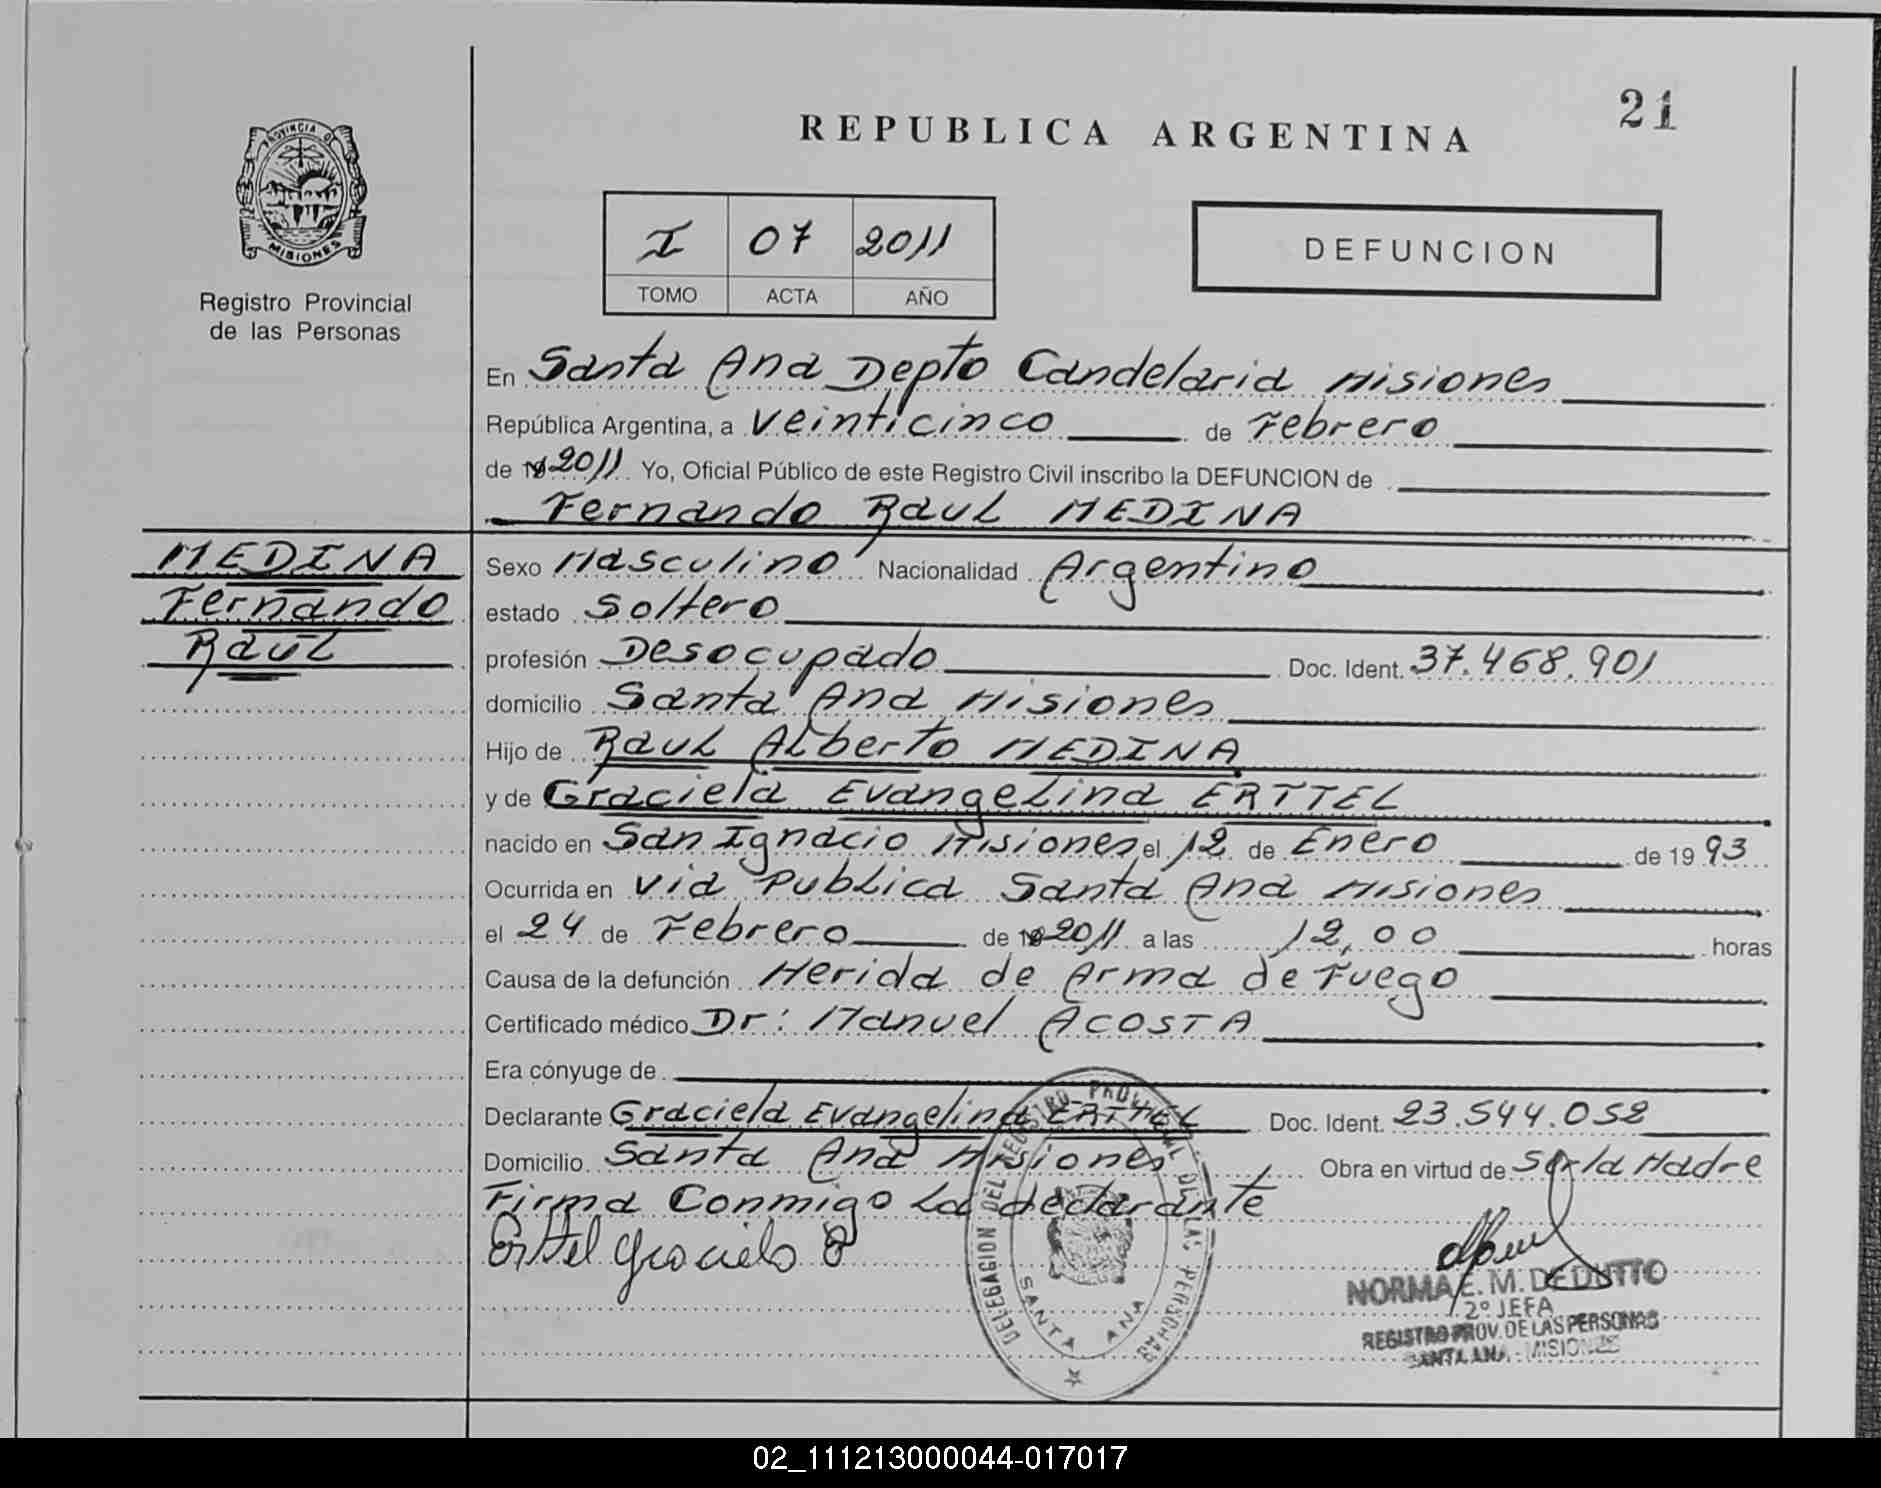 21
REPUBLICA ARGENTINA
PROVINCIA DE
MISIONES
Registro Provincial
de las Personas
I 07 2011
TOMO ACTA AÑO
DEFUNCION
En Santa Ana Depto Candelaria Misiones
República Argentina, a veinticinco de Febrero
de 19 2011 Yo, Oficial Público de este Registro Civil inscribo la DEFUNCION de
Fernando Raul MEDINA
MEDINA
Fernando
Raul
Sexo Masculino Nacionalidad Argentino
estado Soltero
profesión Desocupado Doc. Ident. 37.468.901
domicilio Santa Ana Misiones
Hijo de Raul Alberto MEDINA
y de Graciela Evangelina ERTTEL
nacido en San Ignacio Misiones el 12 de Enero de 19 93
Ocurrida en via Publica Santa Ana Misiones
el 24 de Febrero de 19 2011 a las 12,00 horas
Causa de la defunción Herida de Arma de Fuego
Certificado médico Dr: Manuel ACOSTA
Era cónyuge de
Declarante Graciela Evangelina ERTTEL Doc. Ident. 23.544.052
Domicilio Santa Ana Misiones Obra en virtud de Ser la Madre
Firma Conmigo La declarante
Erttel Graciela E
DELEGACION DEL REGISTRO PROVINCIAL DE LAS PERSONAS
SANTA ANA
NORMA E. M. DEDUTTO
2º JEFA
REGISTRO PROV. DE LAS PERSONAS
SANTA ANA - MISIONES
02_111213000044-017017